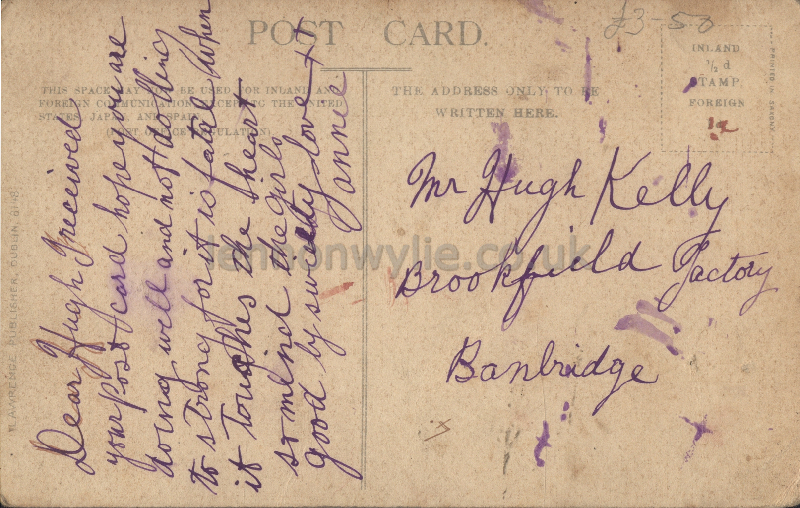 POST CARD.
£3-50
INLAND
½ d
STAMP
FOREIGN
PRINTED IN SAXONY
THIS SPACE MAY NOW BE USED FOR INLAND AND
FOREIGN COMMUNICATIONS EXCEPTING THE UNITED
STATES, JAPAN, AND SPAIN.
(POST OFFICE REGULATION)
THE ADDRESS ONLY TO BE
WRITTEN HERE.
Dear Hugh I received
your post card hope you are
doing well and not falling
to strong for it is fatel when
it touches the heart
so mind the girls
good by sweety love + +
Annie
Mr Hugh Kelly
Brookfield Factory
Banbridge
LAWRENCE, PUBLISHER, DUBLIN,
lennonwylie.co.uk